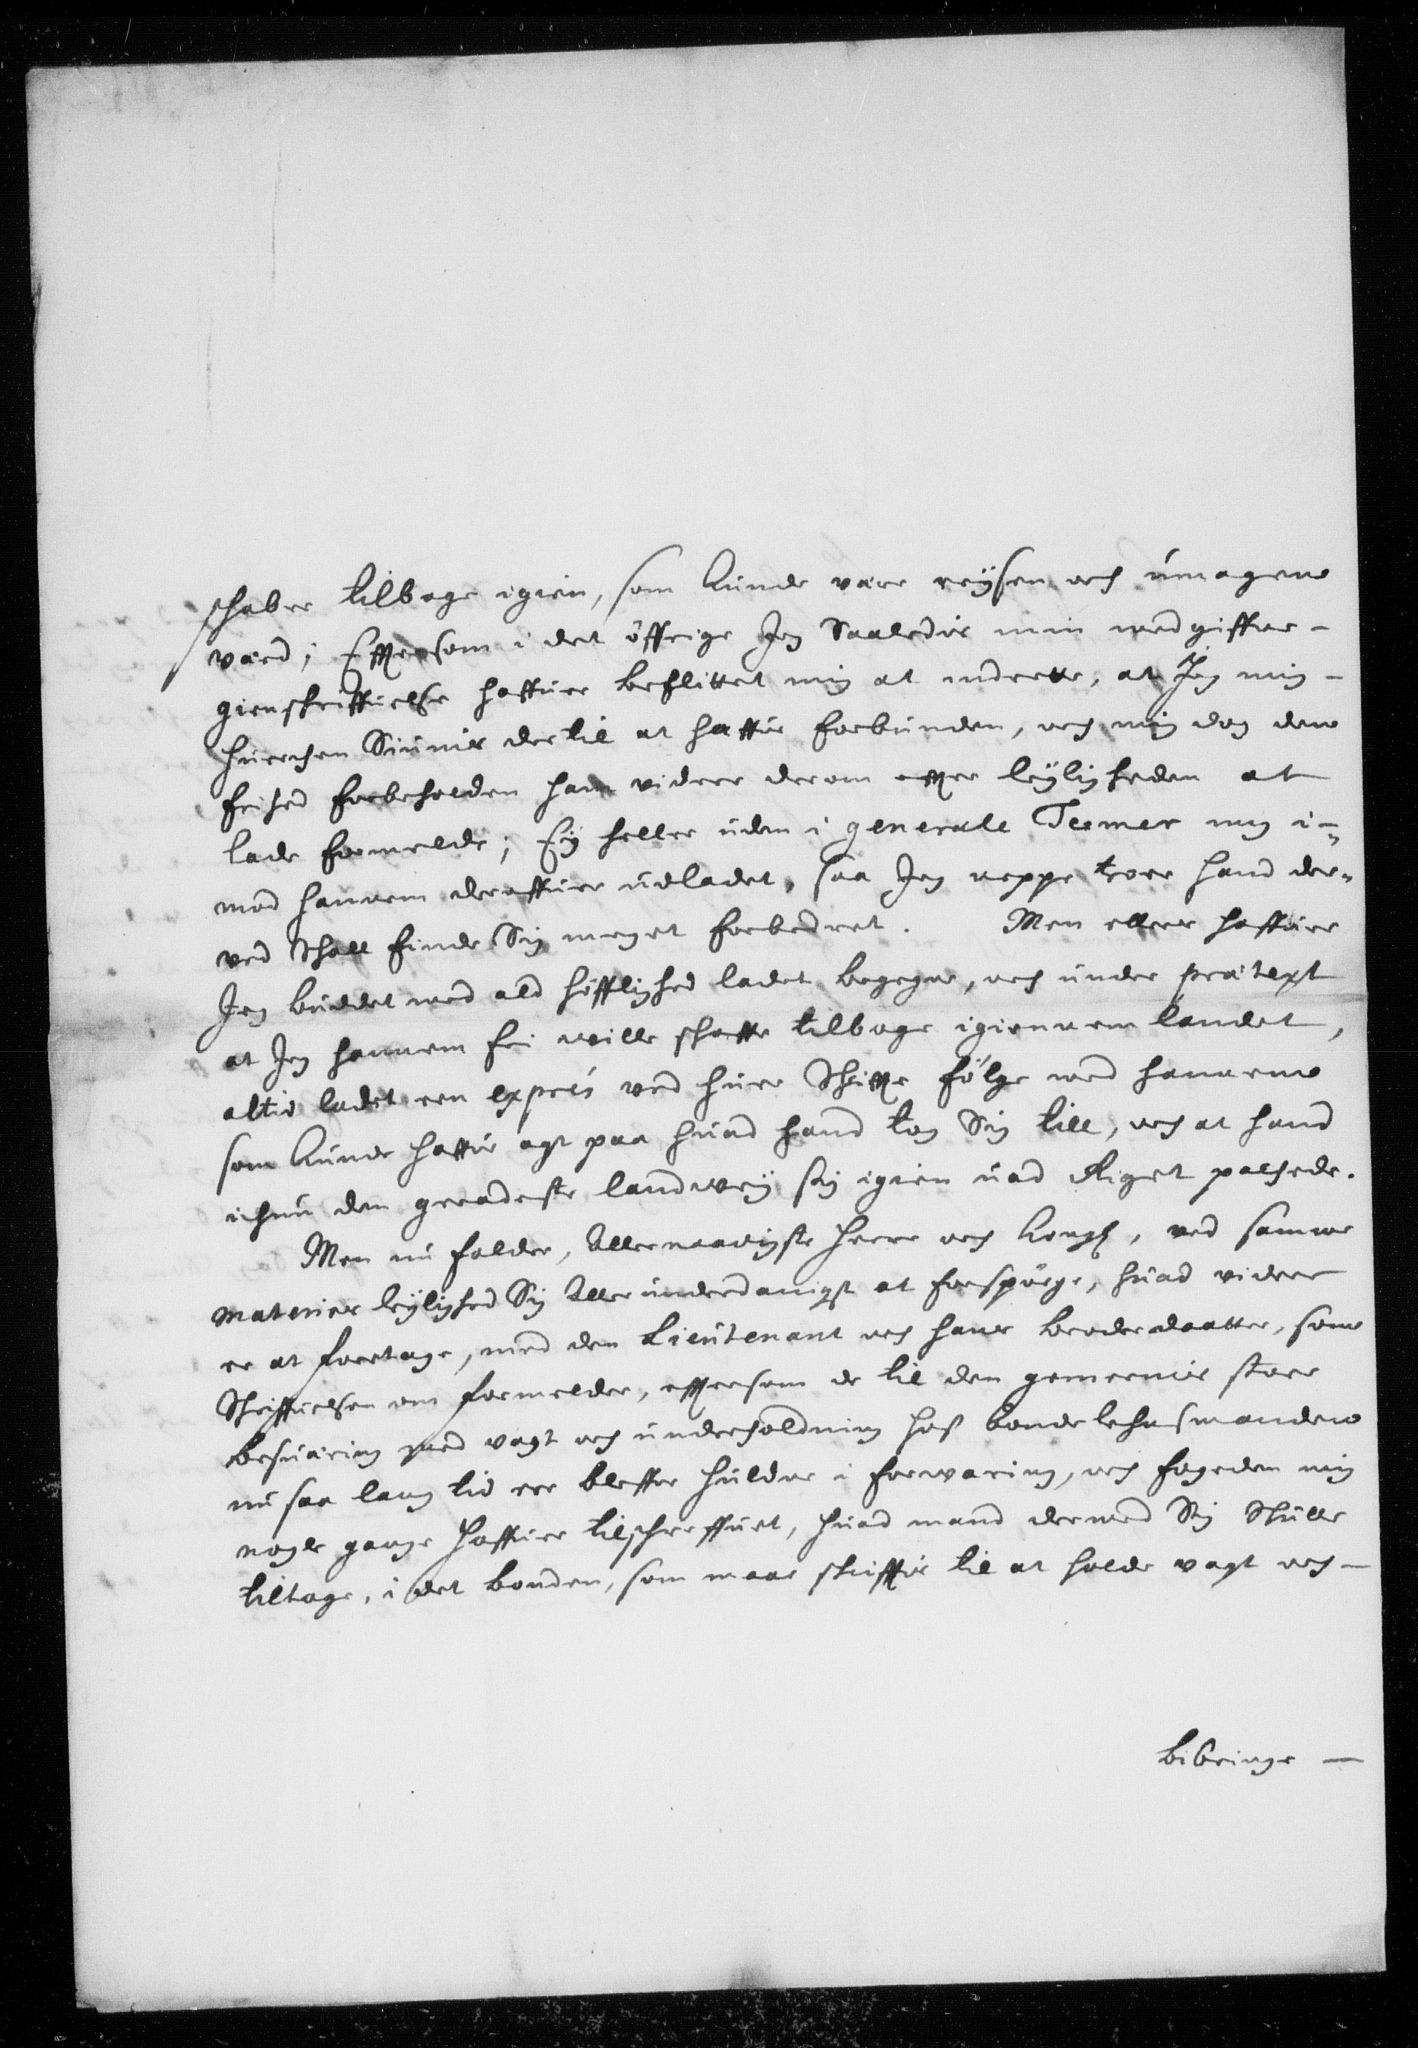 schaber tilbage igien, som kunde være reÿsen och umagen
værd; Effter som i det öffrige Jeg Saaledis min med giffne
gienskriffuelse haffuer beflittet mig at indrette, at Jeg mig
huerchen Siunis der til at haffue forbunden, och mig dog den
frihed forbeholden ham videre derom effter leÿligheden at
lade formelde; Eÿ heller uden i generale Termer mig i-
mod hannem deroffuer udladet, saa Jeg neppe troer hand der-
ved Schall finde Sig meget forbedret. Men ellers haffuer
Jeg buddet med ald höfflighed ladet begegne, och under prætext
at Jeg hannem fri wille schaffe tilbage igiennem landet,
altid ladet een exprés ved huer Skiffte fölge med hannem
som kunde haffue agt paa huad hand tog Sig till, och at hand
ichun den geradeste landweÿ sig igien uad Riget pachede.
Men nu falder, Allernaadigste Herre och Kongh, ved samme
materier leÿlighed Sig Allerunderdanigst at forspörge, huad videre
er at foretage, med den Lieutenant och hans broderdaatter, som
Skriffuelsen om formelder, efftersom de til den gemeenis store
besuæring med vagt och underholdning hoss bonde lehnsmanden
nu saa lang tid ere bleffne huldne i forwaring, och fogeden mig
nogle gange haffuer tilschreffuet, huad mand dermed Sig Skulle
tiltage, i det bonden, som maae skifftis til at holde vagt och
bibringe